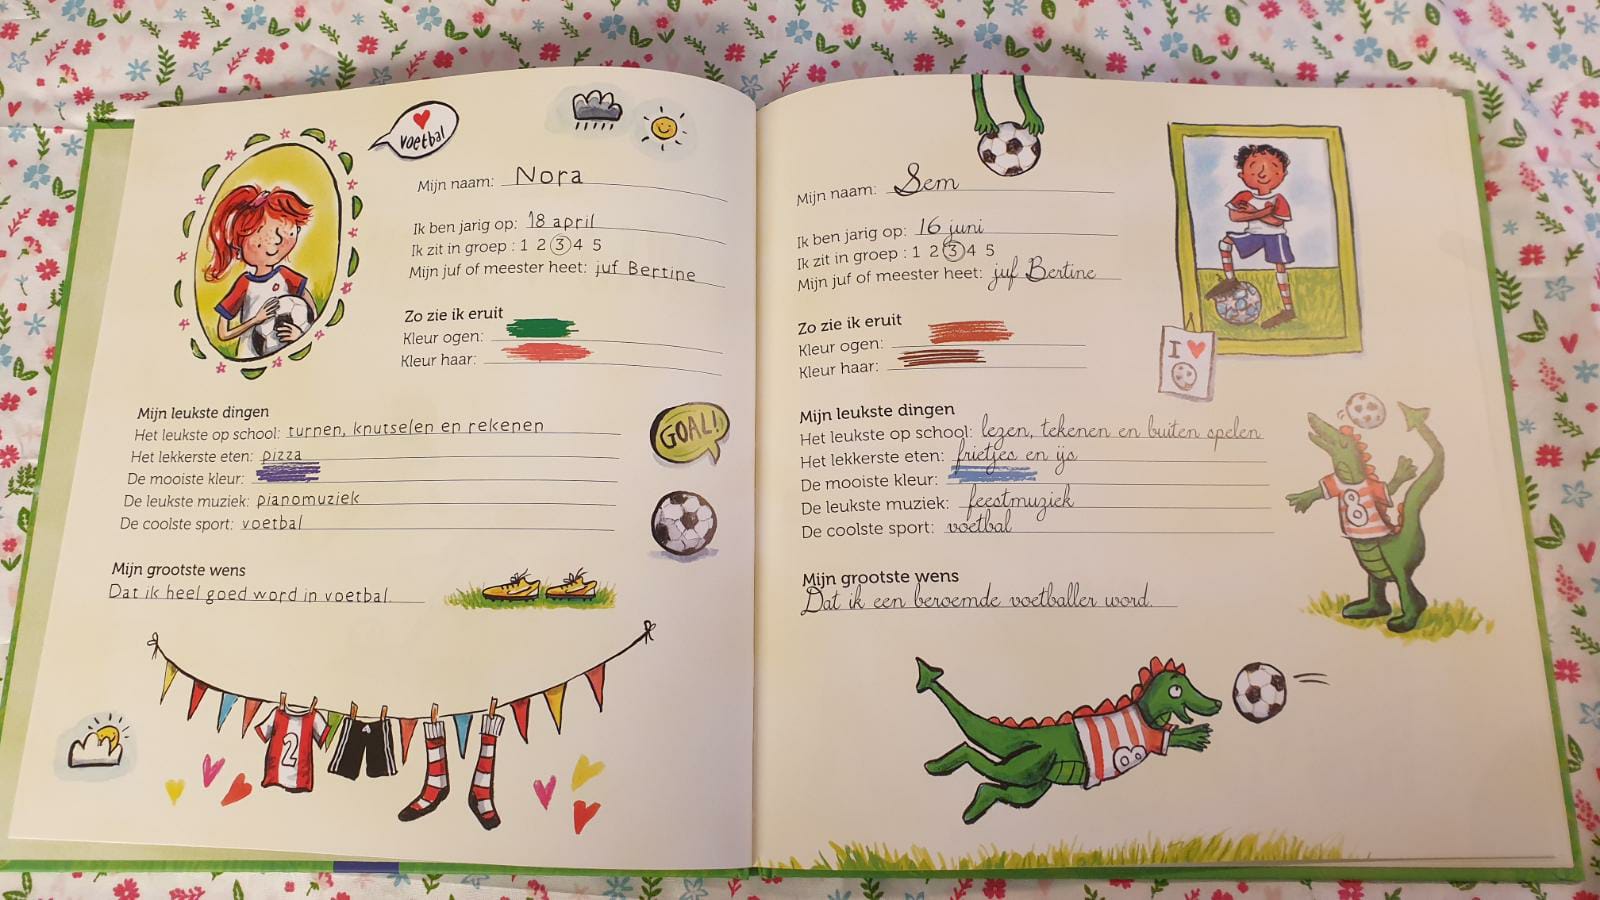 voetbal
Mijn naam: Nora
Ik ben jarig op: 18 april
Ik zit in groep : 1 2 3 4 5
Mijn juf of meester heet: juf Bertine
Zo zie ik eruit
Kleur ogen:
Kleur haar:
Mijn leukste dingen
Het leukste op school: turnen, knutselen en rekenen
Het lekkerste eten: pizza
De mooiste kleur:
De leukste muziek: pianomuziek
De coolste sport: voetbal
GOAL!
Mijn grootste wens
Dat ik heel goed word in voetbal.
2
Mijn naam: Sem
Ik ben jarig op: 16 juni
Ik zit in groep : 1 2 3 4 5
Mijn juf of meester heet: juf Bertine
Zo zie ik eruit
Kleur ogen:
Kleur haar:
I
Mijn leukste dingen
Het leukste op school: lezen, tekenen en buiten spelen
Het lekkerste eten: frietjes en ijs
De mooiste kleur:
De leukste muziek: feestmuziek
De coolste sport: voetbal
8
Mijn grootste wens
Dat ik een beroemde voetballer word.
8